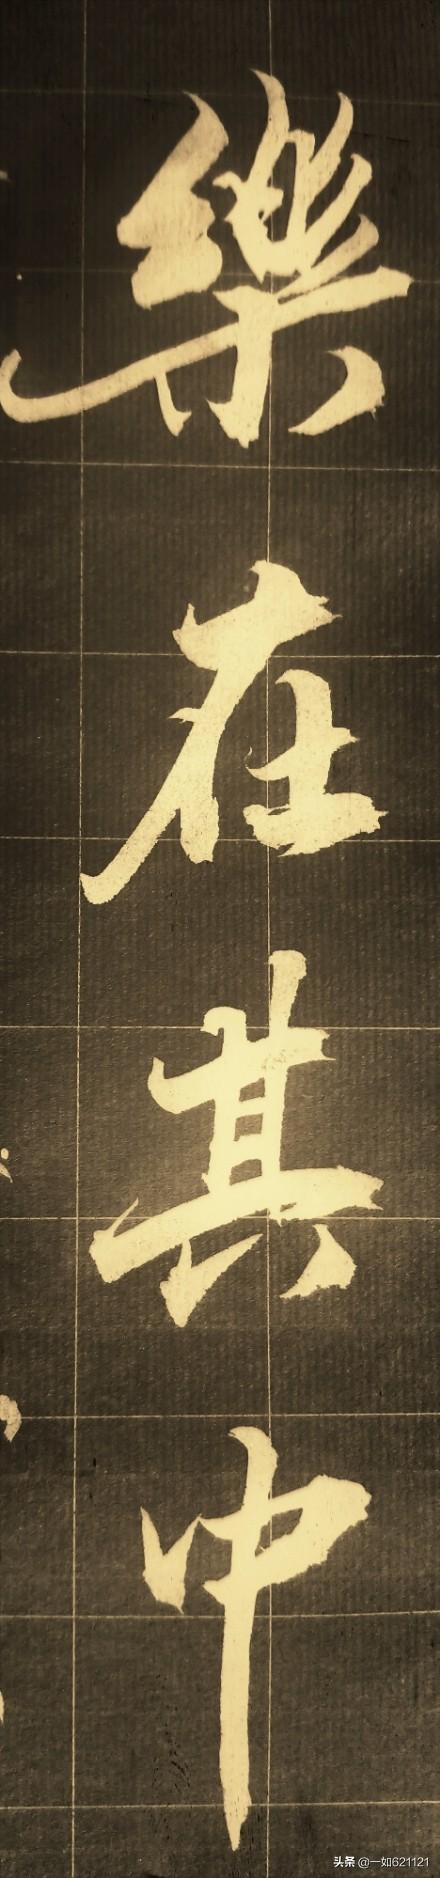 樂在其中
头条 @一如621121